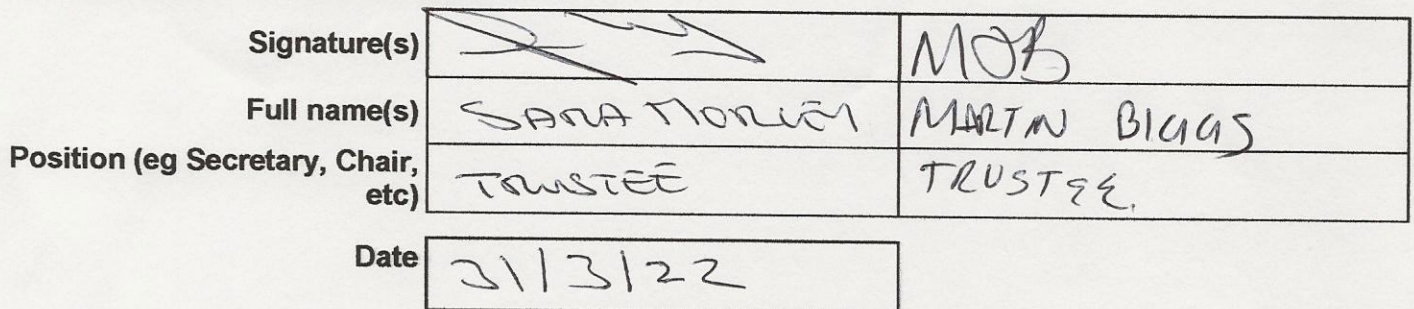 Signature(s) MOB
Full name(s) SARA MORLEY MARTIN BIGGS
Position (eg Secretary, Chair,
etc) TRUSTEE TRUSTEE.
Date 31/3/22